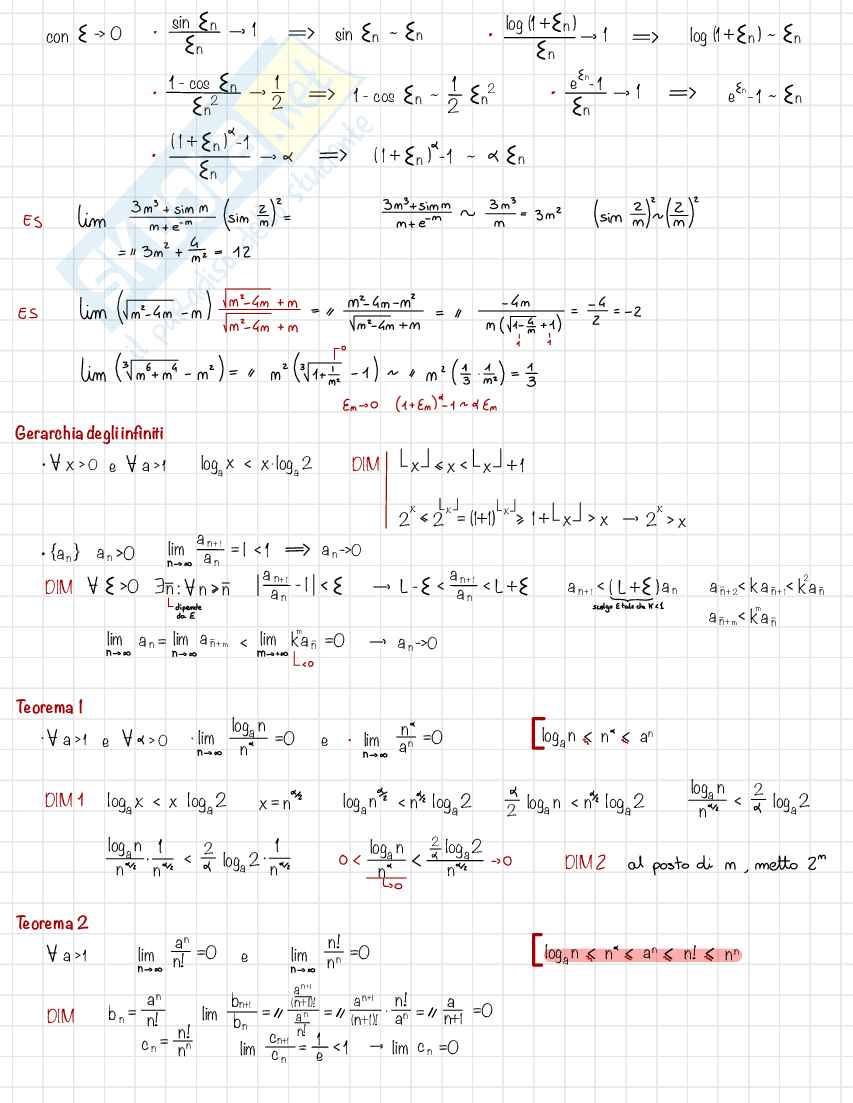 con ξ → 0 · sin ξn / ξn → 1 ⟹ sin ξn ~ ξn · log (1+ξn) / ξn → 1 ⟹ log (1+ξn) ~ ξn
· 1 - cos ξn / ξn² → 1/2 ⟹ 1 - cos ξn ~ 1/2 ξn² · e^ξn -1 / ξn → 1 ⟹ e^ξn -1 ~ ξn
· (1+ξn)^α -1 / ξn → α ⟹ (1+ξn)^α -1 ~ α ξn
ES lim 3m³ + sin m / m + e^-m (sin 2/m)² = 3m³ + sin m / m + e^-m ~ 3m³/m = 3m² (sin 2/m)² ~ (2/m)²
= 〃 3m² + 4/m² = 12
ES lim (√(m²-4m) - m) √(m²-4m) + m / √(m²-4m) + m = 〃 m²-4m-m² / √(m²-4m) + m = 〃 -4m / m(√(1-4/m) + 1) = -4/2 = -2
1 1
→0
lim (∛(m⁶+m⁴) - m²) = 〃 m² (∛(1+1/m²) - 1) ~ 〃 m² (1/3 · 1/m²) = 1/3
εm→0 (1+εm)^α -1 ~ α εm
Gerarchia degli infiniti
· ∀ x>0 e ∀ a>1 logₐ x < x·logₐ 2 DIM ⌊x⌋ ≤ x < ⌊x⌋+1
2^x ≤ 2^⌊x⌋ = (1+1)^⌊x⌋ ≥ 1+⌊x⌋ > x → 2^x > x
· {an} an>0 lim n→∞ an+1/an = l < 1 ⟹ an→0
DIM ∀ ξ>0 ∃n̄ : ∀ n ≥ n̄ |an+1/an - l| < ξ → L-ξ < an+1/an < L+ξ an+1 < (L+ξ)an an̄+2 < k an̄+1 < k² an̄
dipende da ξ scelgo ξ tale che K<1 an̄+m < k^m an̄
lim n→∞ an = lim n→∞ an̄+m < lim m→+∞ k^m an̄ = 0 → an→0
<0
Teorema 1
· ∀ a>1 e ∀ α>0 · lim n→∞ logₐ n / n^α = 0 e · lim n→∞ n^α / a^n = 0 [ logₐ n ≤ n^α ≤ a^n
DIM 1 logₐ x < x logₐ 2 x = n^α/2 logₐ n^α/2 < n^α/2 logₐ 2 α/2 logₐ n < n^α/2 logₐ 2 logₐ n / n^α/2 < 2/α logₐ 2
logₐ n / n^α/2 · 1 / n^α/2 < 2/α logₐ 2 · 1 / n^α/2 0 < logₐ n / n^α < 2/α logₐ 2 / n^α/2 → 0 DIM 2 al posto di m, metto 2^m
→0
Teorema 2
∀ a>1 lim n→∞ a^n / n! = 0 e lim n→∞ n! / n^n = 0 [ logₐ n ≤ n^α ≤ a^n ≤ n! ≤ n^n
DIM bn = a^n / n! lim bn+1 / bn = 〃 a^n+1 / (n+1)! / a^n / n! = 〃 a^n+1 / (n+1)! · n! / a^n = 〃 a / n+1 = 0
cn = n! / n^n lim cn+1 / cn = 1/e < 1 → lim cn = 0
SKUOLA.net
il paradiso dello studente